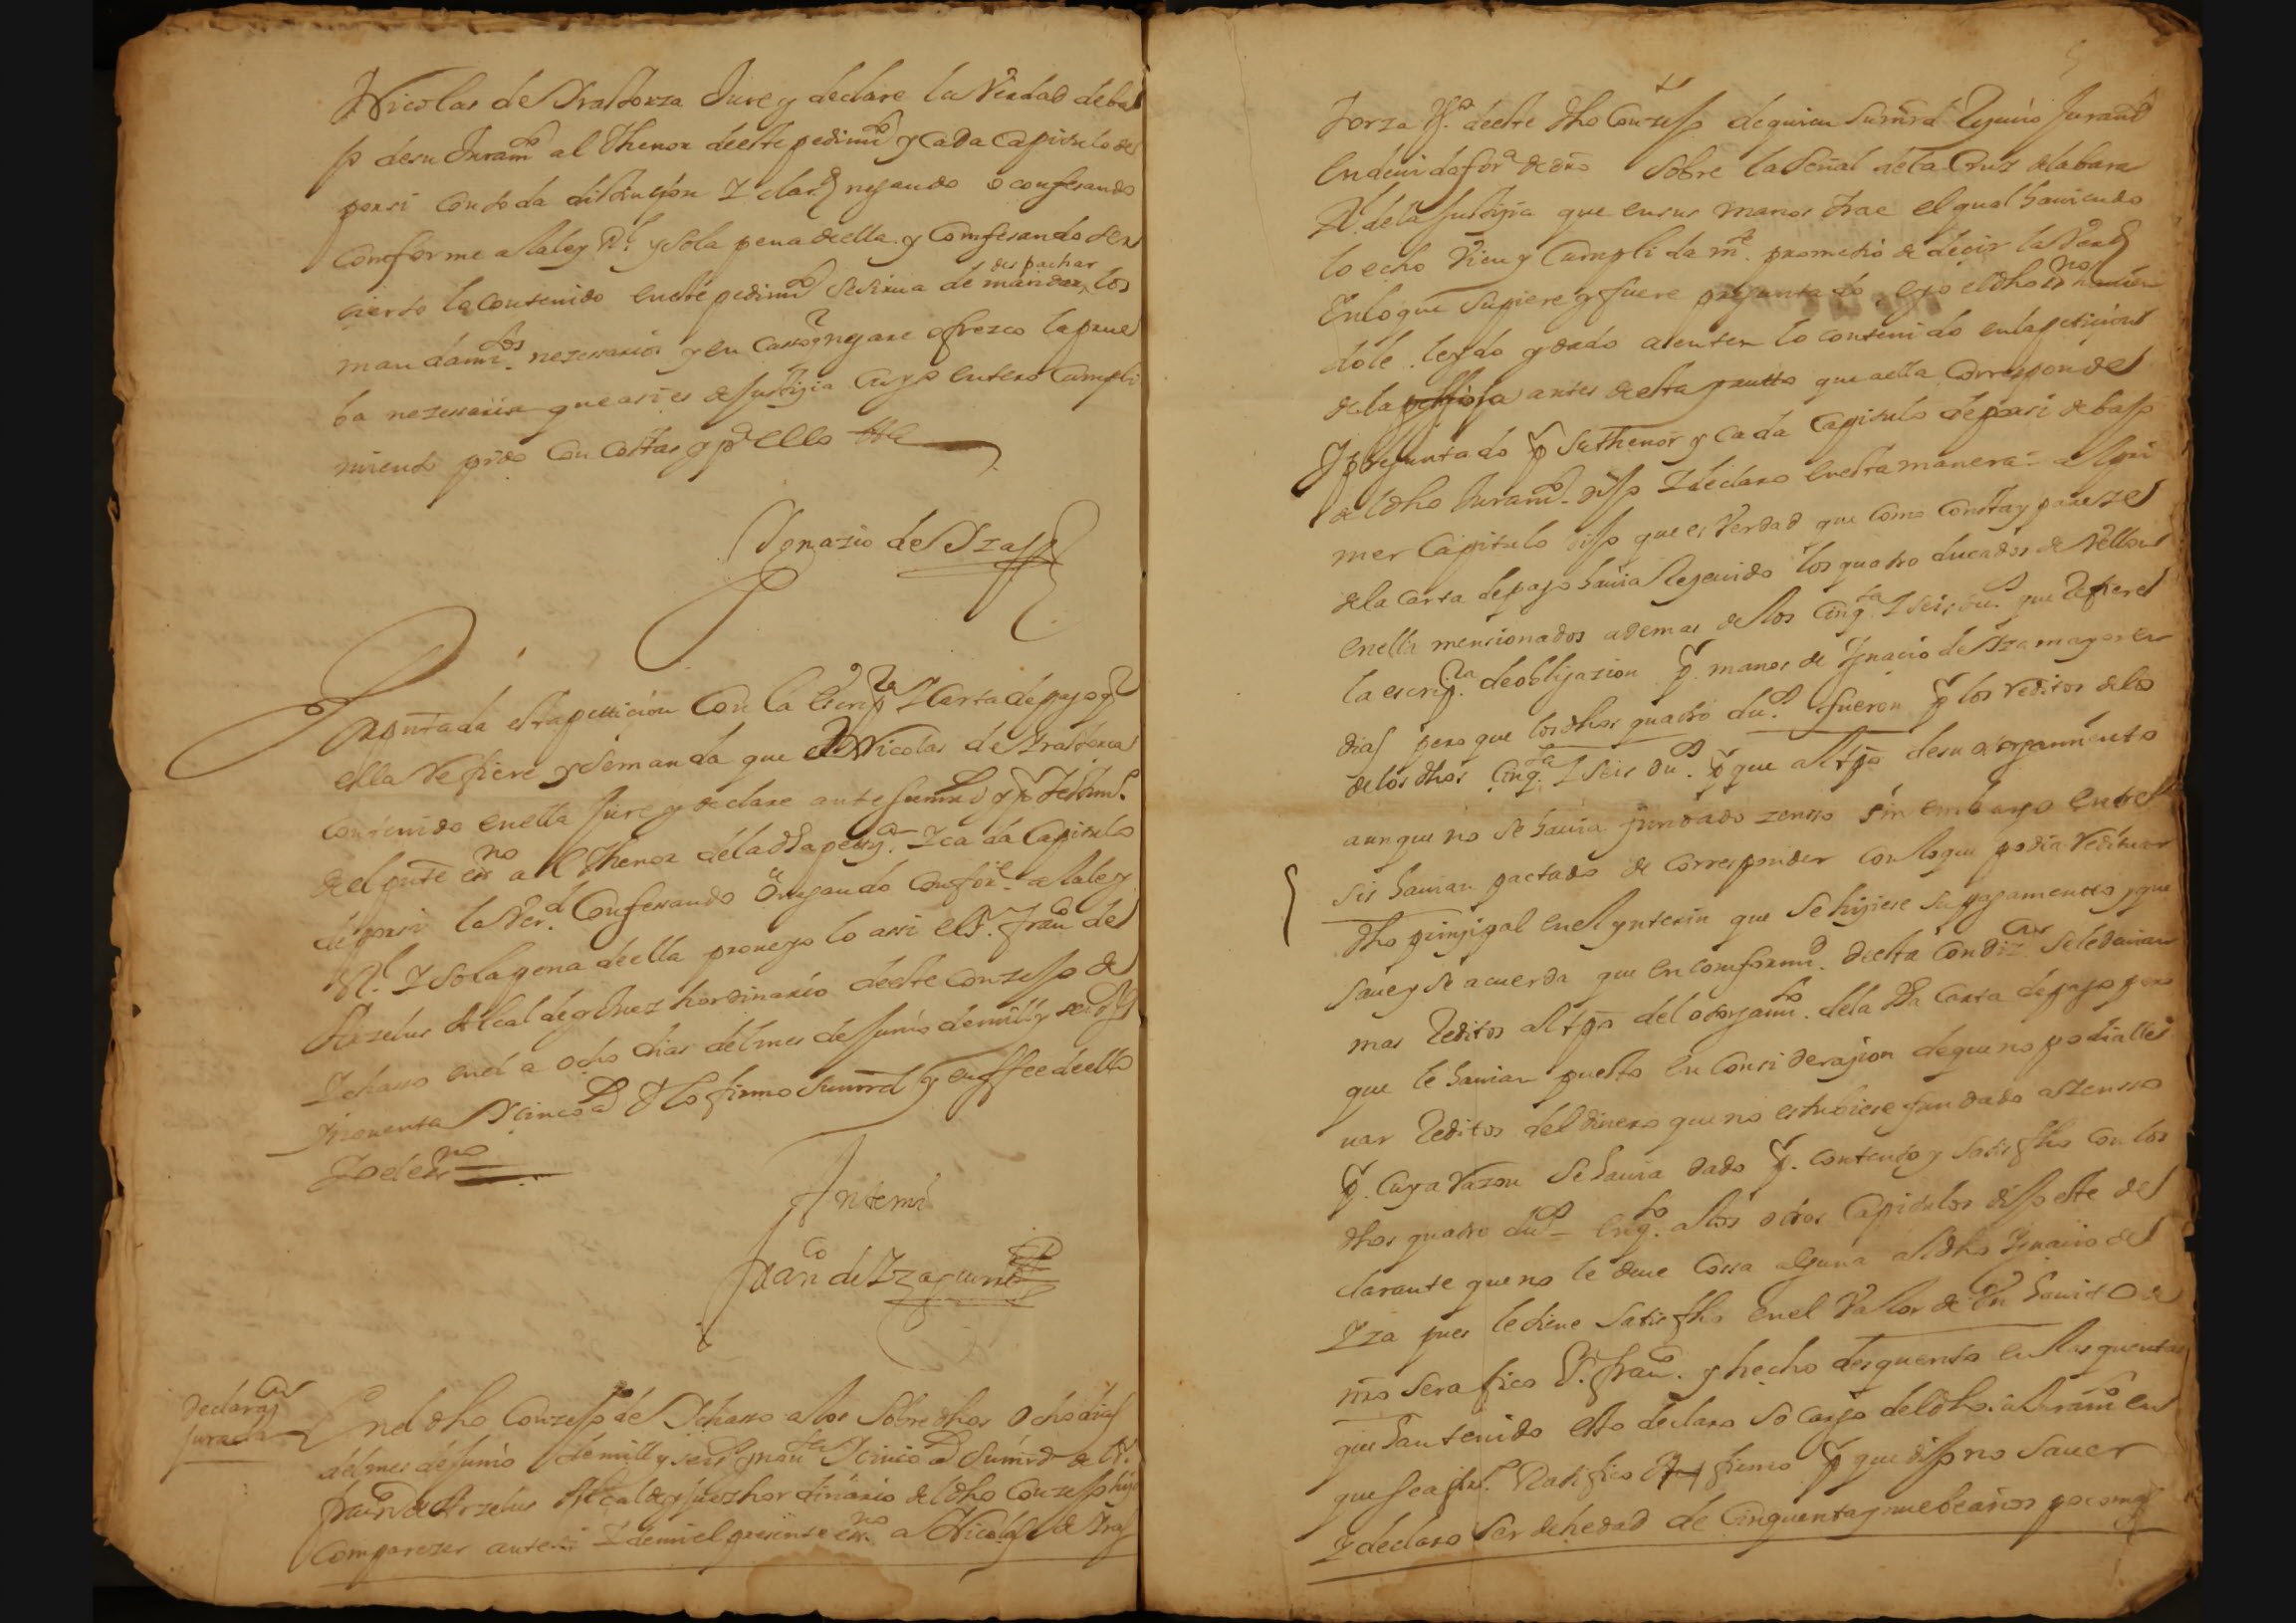 Nicolas de Yraltorza Jure y declare la Verdad deba
jo desu Juramto al Thenor deeste pedimto y Cada Capitulo de
porsi Con toda distinçion Y clarid negando o confesando
Conforme a la ley Rl y sola pena deella. y Comfesando ser
cierto lo Contenido en este pedimto se sirua de mandar despachar los
mandamtos nezessarios y en Casso q negare ofrezco la prue
ba nezessaria que asi es de Justiçia Cuyo entero Cumpli
miento pido Con Costas y pa ello etta
Ignazio de Yza
Presentada esta petticion Con la escripra Y Carta de pago q
ella Refiere y demanda que el Nicolas de Yraltorza
Contenido en ella Jure y declare ante su mrd y por Testimo
del pnte esno al Thenor de la dha petiçn Y cada Capitulo
de porsi la Verd. Confesando o negando Confore a la ley
Rl. Y so la pena de ella proueyo lo assi el Sr. Franco de
Arzelus Alcalde y Juez hordinario deeste Conzejo de
Ychaso en el a ocho dias del mes de Junio de mill y seisos
Y nouenta Y cinco as Y lo firmo su mrd y en ffee de ello
Yo el esno
Ante mi
Franco de Yzaguirre
Declaraon
Jurada
En el dho Conzejo de Ychasso a los Sobre dhos Ocho dias
del mes de Junio de mill y seisos nouta Y cinco as Su mrd de el Sr.
Franco de Arzelus Alcalde y Juez hordinario del dho Conzejo hizo
Comparezer ante si Y de mi el presente esno a Nicolas de Yral
torza Vo. deeste dho Conzejo de quien Su mrd Reçiuio Juramto
en deuida fora de dro Sobre la Señal de la Cruz de la bara
Rl. de la Justiçia que en sus manos trae el qual hauiendo
lo echo Vien y Cumplidamte. prometio de decir la Verd
En lo que supiere y fuere preguntado, e yo el dho esno hauien
dole leydo y dado a entender lo contenido en la petiçion
de la antes de esta que a ella Corresponde
Y preguntado por su thenor y cada Capitulo de porsi debajo
del dho Juramto. dijo Y declaro en esta manera = al pri
mer Capitulo dijo que es Verdad que Como Consta y pareze
de la Carta de pago hauia Reçeuido los quatro ducados de Vellon
en ella mencionados ademas de los Cinqta Y seis dus. que Refiere
la escripra. de obligazion por manos de Ygnacio de Yza mayor en
dias pero que los dhos quatro dus. fueron por los reditos de lo
de los dhos Cinqta Y seis dus. por que al tpo desu otorgamiento
aunque no se hauia fundado zenso sin embargo entre
sis hauian pactado de Corresponder con lo que podia redituar
dho prinçipal en el ynterin que se hiçiese su pagamento, y que
saue y se acuerda que en conformd. de esta Condizon se le deuian
mas Reditos al tpo del otorgamto. de la dha Carta de pago pero
que le hauian puesto en Consideraçion de que no podia lle
uar Reditos del dinero que no estubiese fundado a zenso
por Cuya Razon Se hauia dado por contento y satisfho con los
dhos quatro dus = en qto. a los otros Capitulos dijo este de
clarante que no le deue Cossa alguna al dho Ygnaçio de
Yza pues le tiene Satisfho en el Valor de Un hauito de
nro Serafico P. Sn Franco. y hecho desquento en las quentas
que han tenido esto declaro so cargo del dho Juramto en
que se afirmo. Ratifico no firmo por que dijo no Sauer
Y declaro ser de hedad de Cinquenta y nuebe años poco mas